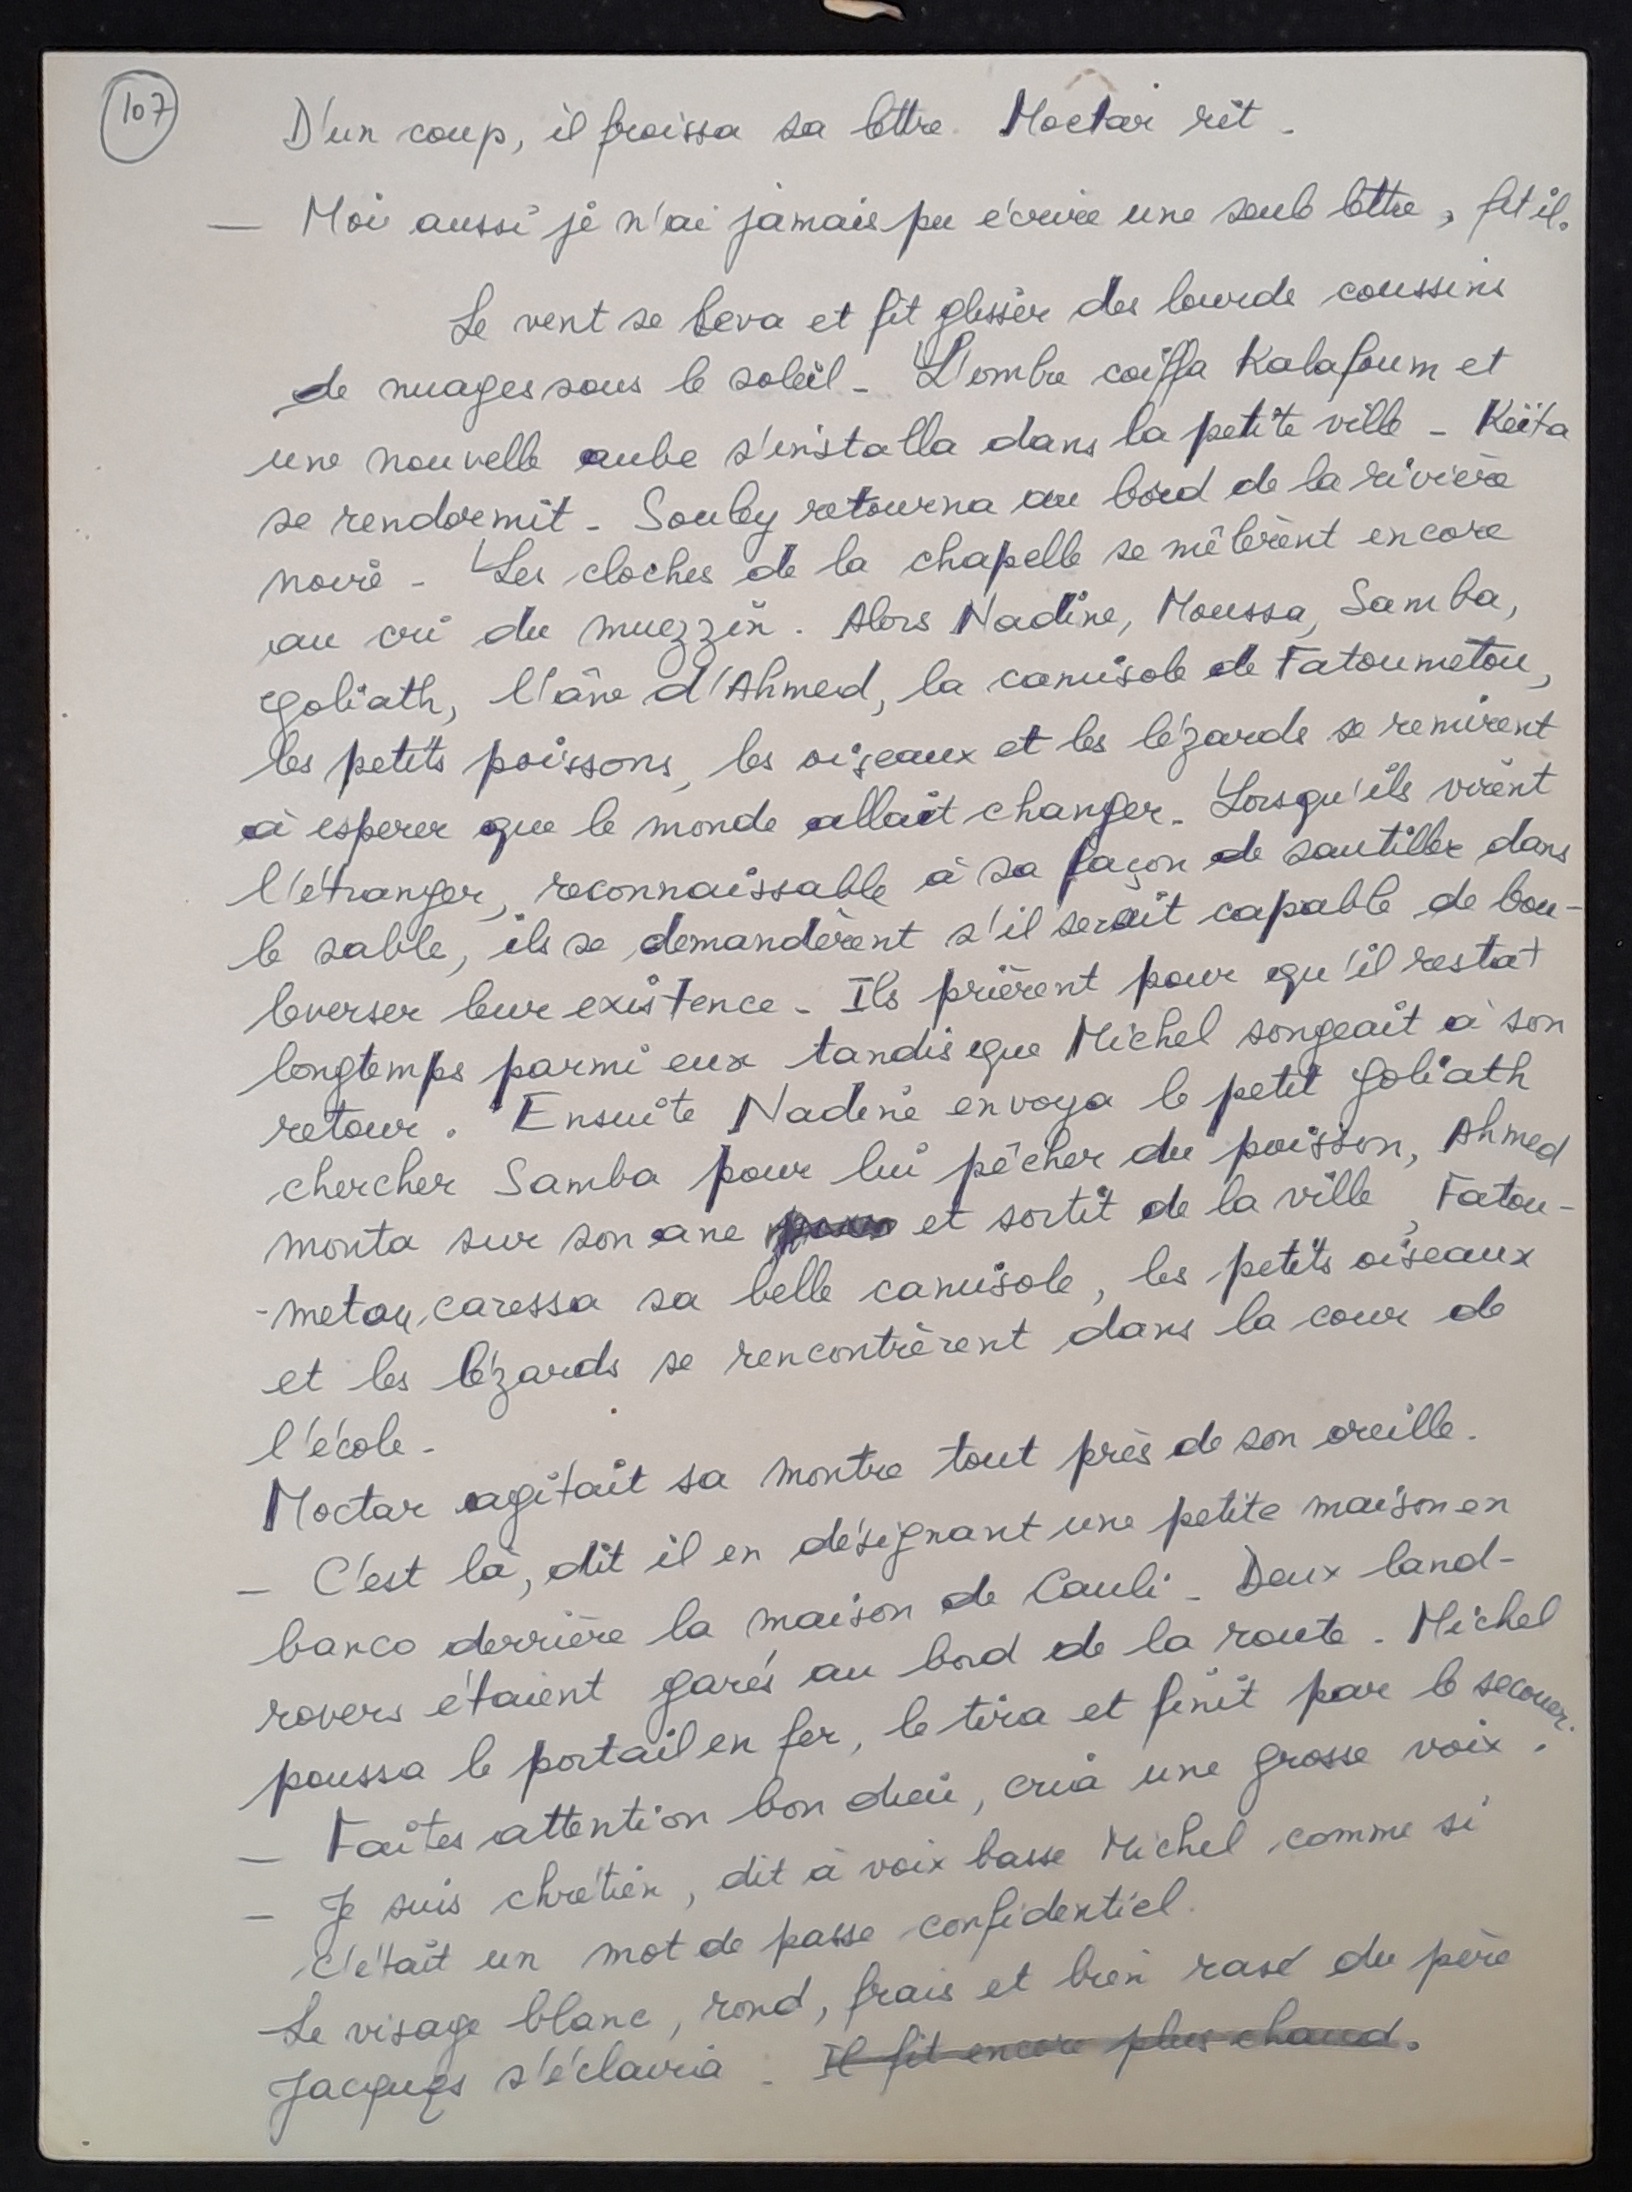 107
D'un coup, il froissa sa lettre. Moctar rit.
— Moi aussi je n'ai jamais pu écrire une seule lettre, fit il.
Le vent se leva et fit glisser des lourds coussins
de nuages sous le soleil - L'ombre coiffa Kalafoum et
une nouvelle aube s'installa dans la petite ville - Keïta
se rendormit - Souley retourna au bord de la rivière
noire - Les cloches de la chapelle se mêlèrent encore
au cri du muezzin. Alors Nadine, Moussa, Samba,
Goliath, l'âne d'Ahmed, la camisole de Fatoumetou,
les petits poissons, les oiseaux et les lézards se remirent
à esperer que le monde allait changer - Lorsqu'ils virent
l'étranger, reconnaissable à sa façon de sautiller dans
le sable, ils se demandèrent s'il serait capable de bou-
leverser leur existence - Ils prièrent pour qu'il restat
longtemps parmi eux tandis que Michel songeait à son
retour. Ensuite Nadine envoya le petit Goliath
chercher Samba pour lui pêcher du poisson, Ahmed
monta sur son ane et sortit de la ville, Fatou-
-metou caressa sa belle camisole, les petits oiseaux
et les lézards se rencontrèrent dans la cour de
l'école -
Moctar agitait sa montre tout près de son oreille.
— C'est là, dit il en désignant une petite maison en
banco derrière la maison de Cauli - Deux land-
rovers étaient garés au bord de la route - Michel
poussa le portail en fer, le tira et finit par le secouer.
— Faites attention bon dieu, cria une grosse voix.
— Je suis chrétien, dit à voix basse Michel comme si
c'était un mot de passe confidentiel.
Le visage blanc, rond, frais et bien rasé du père
Jacques s'éclaira - Il fit encore plus chaud.